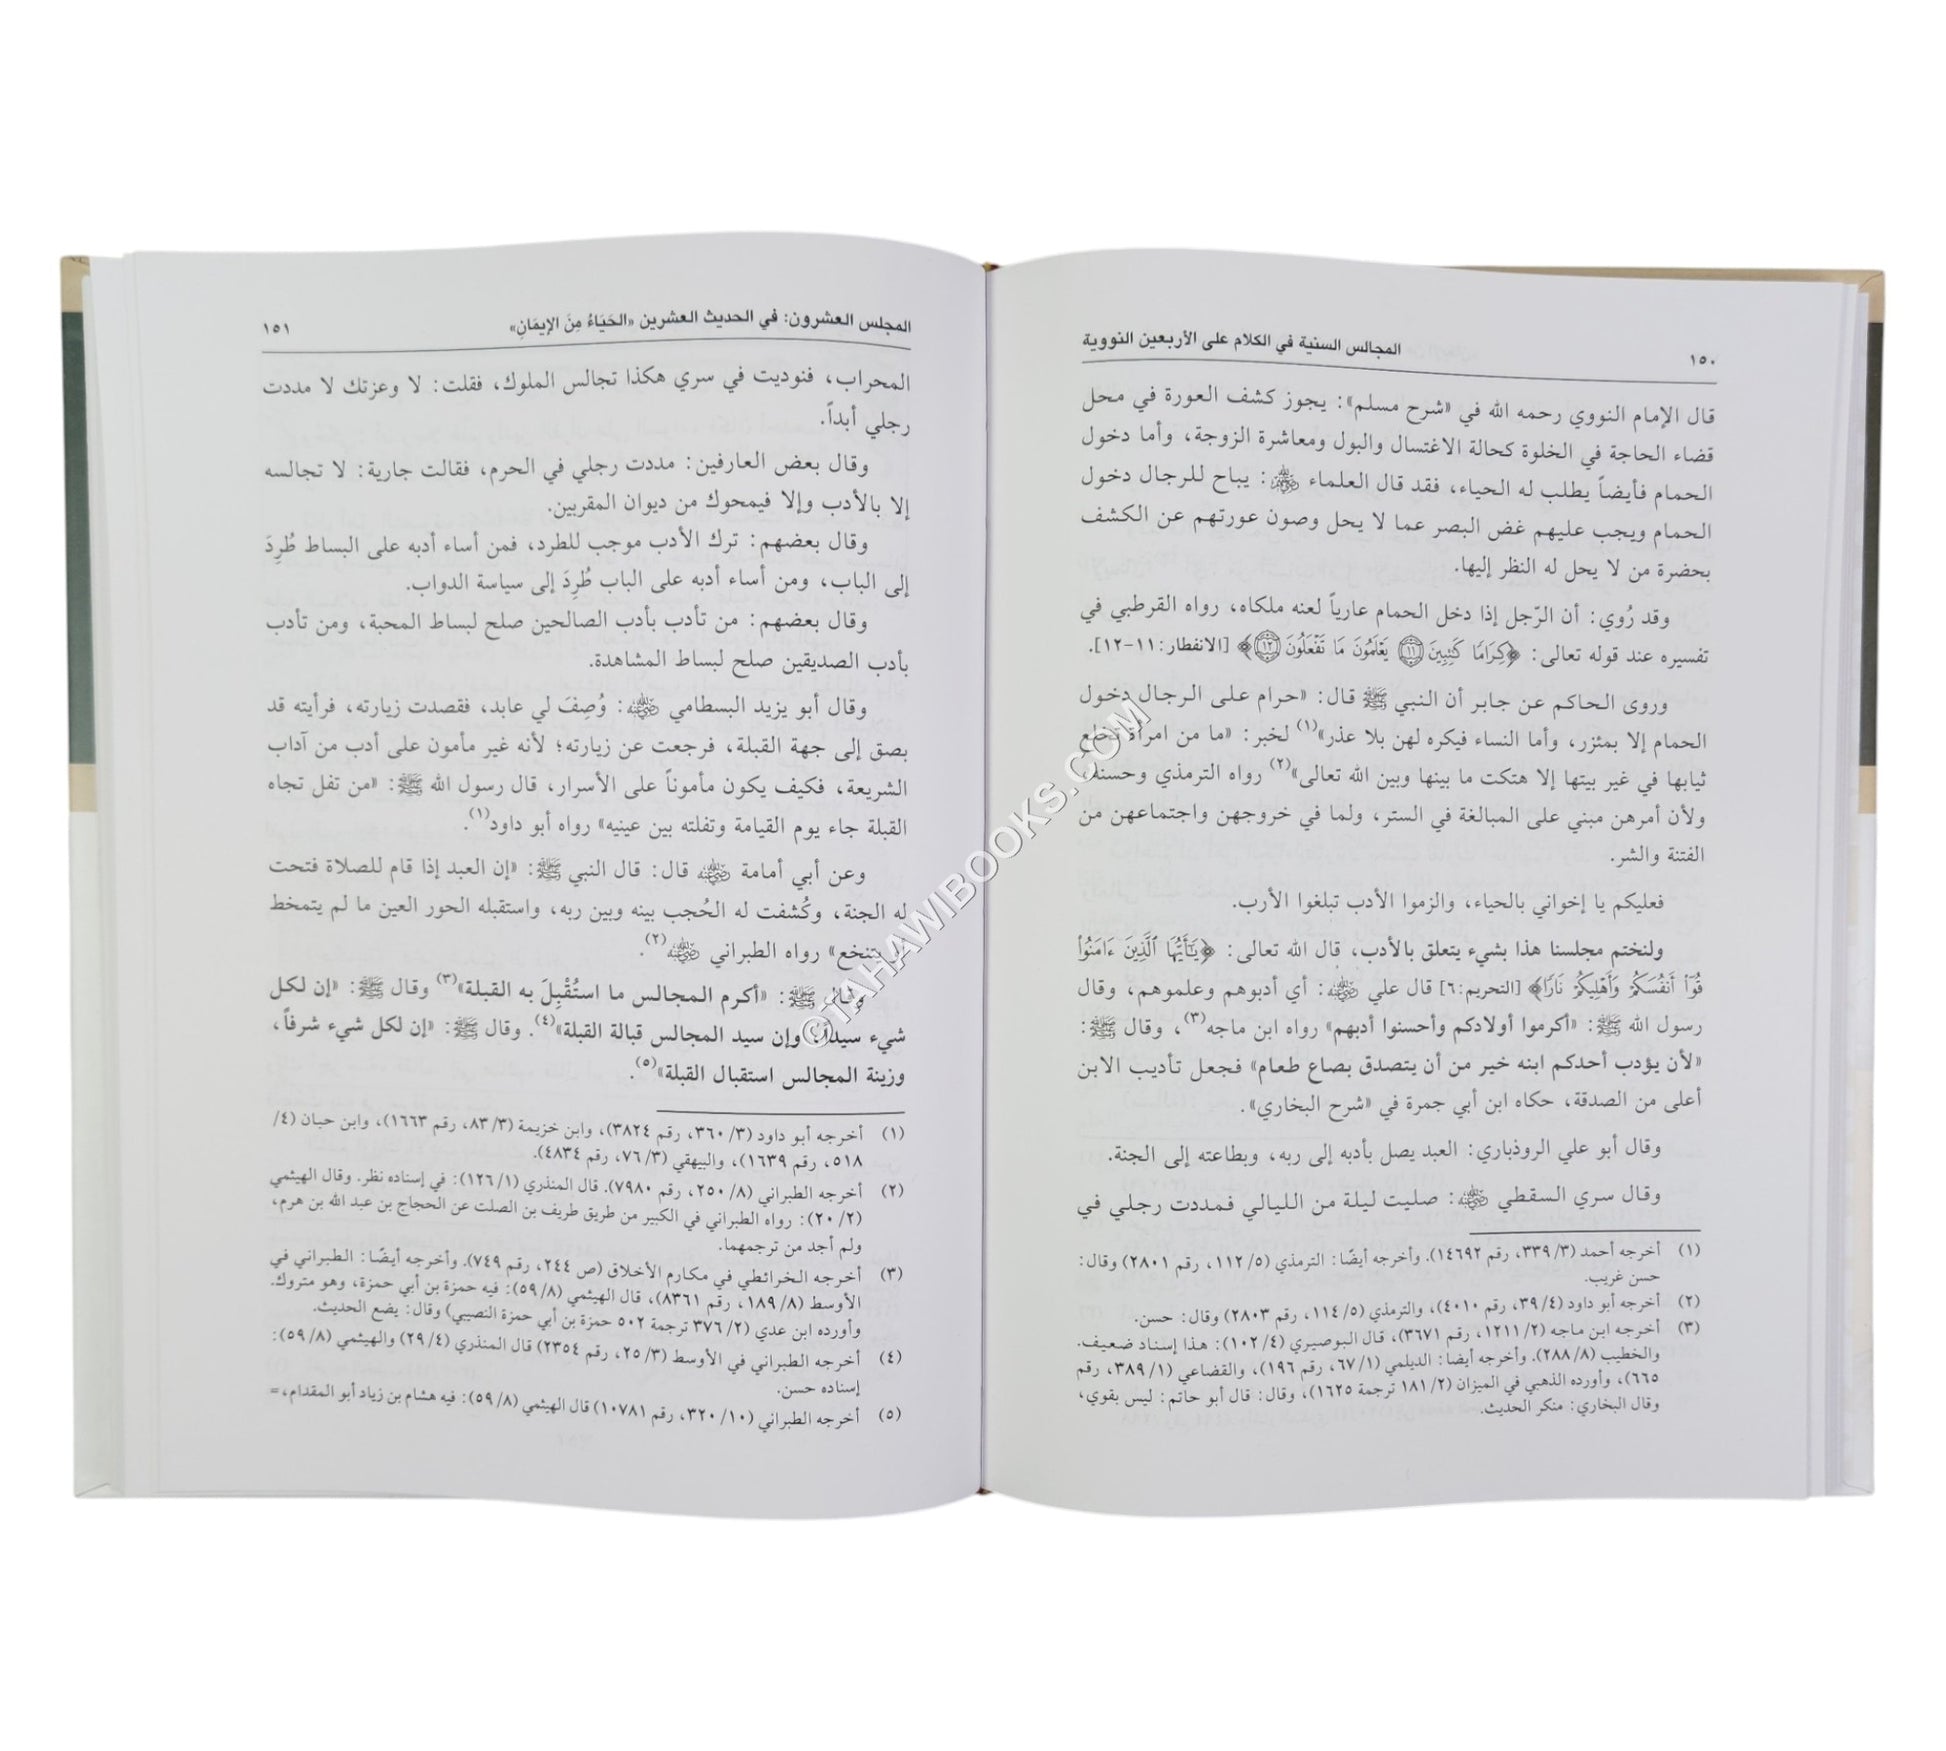 ١٥٠
المجالس السنية في الكلام على الأربعين النووية
قال الإمام النووي رحمه الله في «شرح مسلم»: يجوز كشف العورة في محل
قضاء الحاجة في الخلوة كحالة الاغتسال والبول ومعاشرة الزوجة، وأما دخول
الحمام فأيضاً يطلب له الحياء، فقد قال العلماء رضي الله عنهم: يباح للرجال دخول
الحمام ويجب عليهم غض البصر عما لا يحل وصون عورتهم عن الكشف
بحضرة من لا يحل له النظر إليها.
وقد رُوي: أن الرّجل إذا دخل الحمام عارياً لعنه ملكاه، رواه القرطبي في
تفسيره عند قوله تعالى: ﴿كِرَامًا كَٰتِبِينَ ١١ يَعۡلَمُونَ مَا تَفۡعَلُونَ ١٢﴾ [الانفطار: ١١-١٢].
وروى الحاكم عن جابر أن النبي ﷺ قال: «حرام على الرجال دخول
الحمام إلا بمئزر، وأما النساء فيكره لهن بلا عذر»(١) لخبر: «ما من امرأة تخلع
ثيابها في غير بيتها إلا هتكت ما بينها وبين الله تعالى»(٢) رواه الترمذي وحسنه،
ولأن أمرهن مبني على المبالغة في الستر، ولما في خروجهن واجتماعهن من
الفتنة والشر.
فعليكم يا إخواني بالحياء، والزموا الأدب تبلغوا الأرب.
ولنختم مجلسنا هذا بشيء يتعلق بالأدب، قال الله تعالى: ﴿يَٰٓأَيُّهَا ٱلَّذِينَ ءَامَنُواْ
قُوٓاْ أَنفُسَكُمۡ وَأَهۡلِيكُمۡ نَارٗا﴾ [التحريم: ٦] قال علي رضي الله عنه: أي أدبوهم وعلموهم، وقال
رسول الله ﷺ: «أكرموا أولادكم وأحسنوا أدبهم» رواه ابن ماجه(٣)، وقال ﷺ:
«لأن يؤدب أحدكم ابنه خير من أن يتصدق بصاع طعام» فجعل تأديب الابن
أعلى من الصدقة، حكاه ابن أبي جمرة في «شرح البخاري».
وقال أبو علي الروذباري: العبد يصل بأدبه إلى ربه، وبطاعته إلى الجنة.
وقال سري السقطي رضي الله عنه: صليت ليلة من الليالي فمددت رجلي في
(١) أخرجه أحمد (٣/ ٣٣٩، رقم ١٤٦٩٢). وأخرجه أيضًا: الترمذي (٥/ ١١٢، رقم ٢٨٠١) وقال:
حسن غريب.
(٢) أخرجه أبو داود (٤/ ٣٩، رقم ٤٠١٠)، والترمذي (٥/ ١١٤، رقم ٢٨٠٣) وقال: حسن.
(٣) أخرجه ابن ماجه (٢/ ١٢١١، رقم ٣٦٧١)، قال البوصيري (٤/ ١٠٢): هذا إسناد ضعيف.
والخطيب (٨/ ٢٨٨). وأخرجه أيضا: الديلمي (١/ ٦٧، رقم ١٩٦)، والقضاعي (١/ ٣٨٩، رقم
٦٦٥)، وأورده الذهبي في الميزان (٢/ ١٨١ ترجمة ١٦٢٥)، وقال: قال أبو حاتم: ليس بقوي،
وقال البخاري: منكر الحديث.
المجلس العشرون: في الحديث العشرين «الحَيَاءُ مِنَ الإيمَانِ»
١٥١
المحراب، فنوديت في سري هكذا تجالس الملوك، فقلت: لا وعزتك لا مددت
رجلي أبداً.
وقال بعض العارفين: مددت رجلي في الحرم، فقالت جارية: لا تجالسه
إلا بالأدب وإلا فيمحوك من ديوان المقربين.
وقال بعضهم: ترك الأدب موجب للطرد، فمن أساء أدبه على البساط طُرِدَ
إلى الباب، ومن أساء أدبه على الباب طُرِدَ إلى سياسة الدواب.
وقال بعضهم: من تأدب بأدب الصالحين صلح لبساط المحبة، ومن تأدب
بأدب الصديقين صلح لبساط المشاهدة.
وقال أبو يزيد البسطامي رضي الله عنه: وُصِفَ لي عابد، فقصدت زيارته، فرأيته قد
بصق إلى جهة القبلة، فرجعت عن زيارته؛ لأنه غير مأمون على أدب من آداب
الشريعة، فكيف يكون مأموناً على الأسرار، قال رسول الله ﷺ: «من تفل تجاه
القبلة جاء يوم القيامة وتفلته بين عينيه» رواه أبو داود(١).
وعن أبي أمامة رضي الله عنه قال: قال النبي ﷺ: «إن العبد إذا قام للصلاة فتحت
له الجنة، وكُشفت له الحُجب بينه وبين ربه، واستقبله الحور العين ما لم يتمخط
أو يتنخع» رواه الطبراني رضي الله عنه(٢).
وقال ﷺ: «أكرم المجالس ما استُقْبِلَ به القبلة»(٣) وقال ﷺ: «إن لكل
شيء سيداً، وإن سيد المجالس قبالة القبلة»(٤). وقال ﷺ: «إن لكل شيء شرفاً،
وزينة المجالس استقبال القبلة»(٥).
(١) أخرجه أبو داود (٣/ ٣٦٠، رقم ٣٨٢٤)، وابن خزيمة (٣/ ٨٣، رقم ١٦٦٣)، وابن حبان (٤/
٥١٨، رقم ١٦٣٩)، والبيهقي (٣/ ٧٦، رقم ٤٨٣٤).
(٢) أخرجه الطبراني (٨/ ٢٥٠، رقم ٧٩٨٠). قال المنذري (١/ ١٢٦): في إسناده نظر. وقال الهيثمي
(٢/ ٢٠): رواه الطبراني في الكبير من طريق طريف بن الصلت عن الحجاج بن عبد الله بن هرم،
ولم أجد من ترجمهما.
(٣) أخرجه الخرائطي في مكارم الأخلاق (ص ٢٤٤، رقم ٧٤٩). وأخرجه أيضًا: الطبراني في
الأوسط (٨/ ١٨٩، رقم ٨٣٦١)، قال الهيثمي (٨/ ٥٩): فيه حمزة بن أبي حمزة، وهو متروك.
وأورده ابن عدي (٢/ ٣٧٦ ترجمة ٥٠٢ حمزة بن أبي حمزة النصيبي) وقال: يضع الحديث.
(٤) أخرجه الطبراني في الأوسط (٣/ ٢٥، رقم ٢٣٥٤) قال المنذري (٤/ ٢٩) والهيثمي (٨/ ٥٩):
إسناده حسن.
(٥) أخرجه الطبراني (١٠/ ٣٢٠، رقم ١٠٧٨١) قال الهيثمي (٨/ ٥٩): فيه هشام بن زياد أبو المقدام، =
©TAHAWIBOOKS.COM